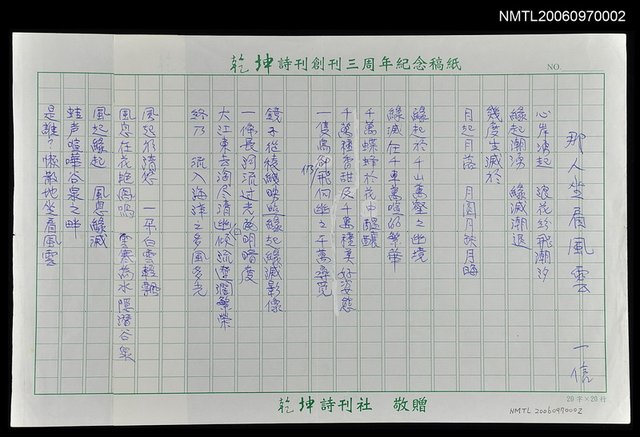 NMTL20060970002
乾坤詩刊創刊三周年紀念稿紙
NO.
那人坐看風雲
一信
心岸湧起 浪花紛飛潮汐
緣起潮湧 緣滅潮退
幾度生滅於
月起月落 月圓月缺月晦
緣起於千山萬壑之幽境
緣滅在千里萬嶂的繁華
千萬蝶蛉於花中醞釀
千種香甜及千萬種美好姿態
一隻鳥卻仍飛向幽之千萬尋覓
鏡子從稜線映照緣起緣滅影像
一條長河流過光與明暗度
大江東去淘尽清幽候流楚濁繁榮
終乃 流入海洋之多風多光
風起於清悠 一平白雲輕飄
風息在花艷鳥鳴 雲寒為水 隱潛谷泉
風起緣起 風息緣滅
蛙声喧嘩谷泉之畔
是誰?懶散地坐看風雲
乾坤詩刊社 敬贈
20字×20行
NMTL 20060970002